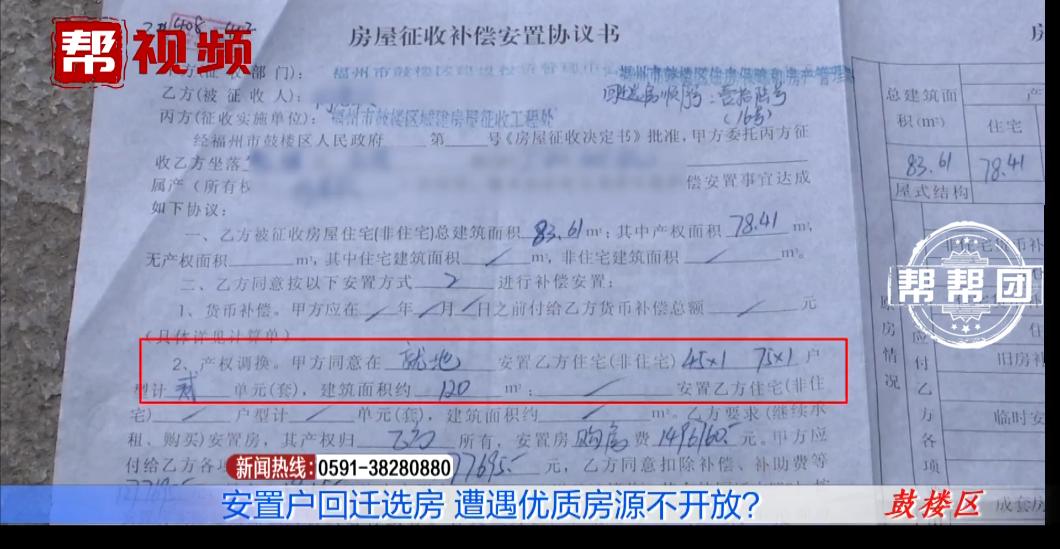 帮视频
房屋征收补偿安置协议书
方(征收部门):
乙方(被征收人):
回迁选房顺序号:壹拾陆号
(16号)
丙方(征收实施单位):福州市鼓楼区城建房屋征收工程处
经福州市鼓楼区人民政府 第 号《房屋征收决定书》批准,甲方委托丙方征
收乙方坐落
属产(所有权 偿安置事宜达成
如下协议:
一、乙方被征收房屋住宅(非住宅)总建筑面积83.61m²;其中产权面积78.41m²,
无产权面积 m²,其中住宅建筑面积 / m²,非住宅建筑面积 / m²。
二、乙方同意按以下安置方式 2 进行补偿安置:
1、货币补偿。甲方应在 / 年 / 月 / 日之前付给乙方货币补偿总额 / 元
(具体详见计算单)。
2、产权调换。甲方同意在 就地 安置乙方住宅(非住宅)45×1 75×1户
型计 贰 单元(套),建筑面积约 120 m²; / 安置乙方住宅(非住
宅) / 户型计 / 单元(套),建筑面积约 / m²。乙方要求(继续承
租、购买)安置房,其产权归 乙方 所有,安置房 购房 费 元。甲方应
付给乙方各项 元,乙方同意扣除补偿、补助费等
总建筑面
积(m²)
住宅
83.61
78.41
屋式结构
非住宅房补
原房情况
应付乙方各项
旧房补
临时安
成套房
帮帮团
新闻热线:0591-38280880
安置户回迁选房 遭遇优质房源不开放?
鼓楼区